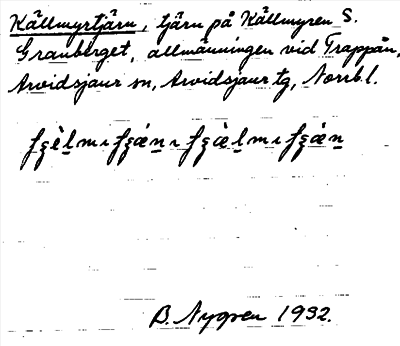 Källmyrtjärn, tjärn på Källmyren S.
Granberget, allmänningen vid Trappån,
Arvidsjaur sn, Arvidsjaur tg, Norrb.l.
B. Nygren 1932.